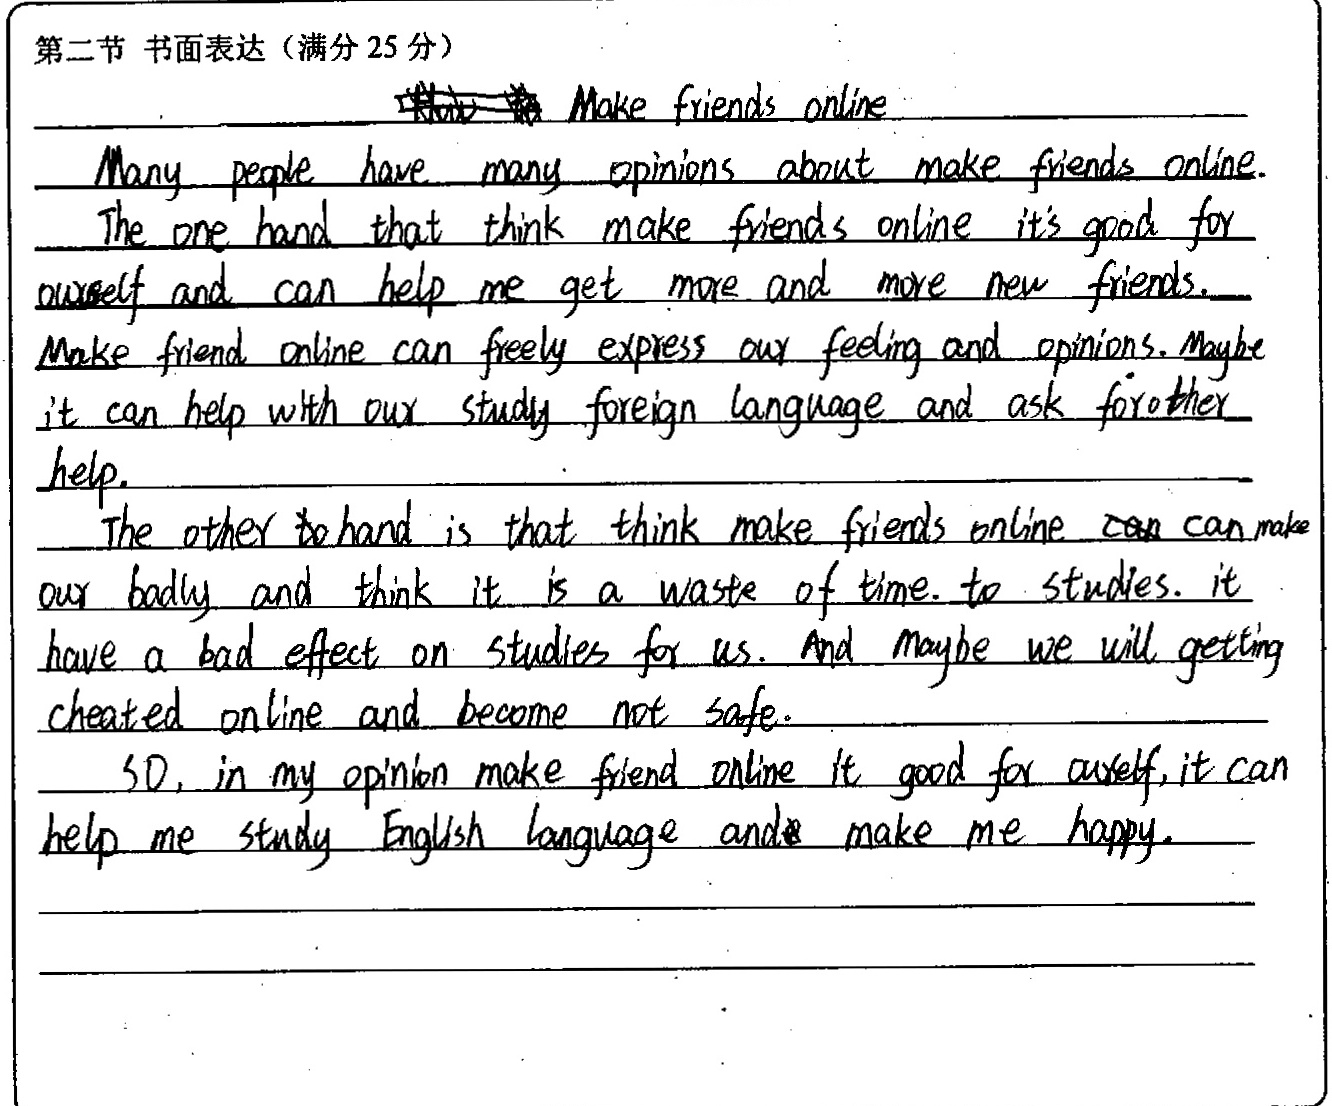 第二节 书面表达（满分 25 分）
Make friends online
Many people have many opinions about make friends online.
The one hand that think make friends online it's good for
ourself and can help me get more and more new friends.
Make friend online can freely express our feeling and opinions. Maybe
it can help with our study foreign language and ask for other
help.
The other hand is that think make friends online can make
our badly and think it is a waste of time. to studies. it
have a bad effect on studies for us. And Maybe we will getting
cheated online and become not safe.
SO, in my opinion make friend online it good for ourself, it can
help me study English language and make me happy.